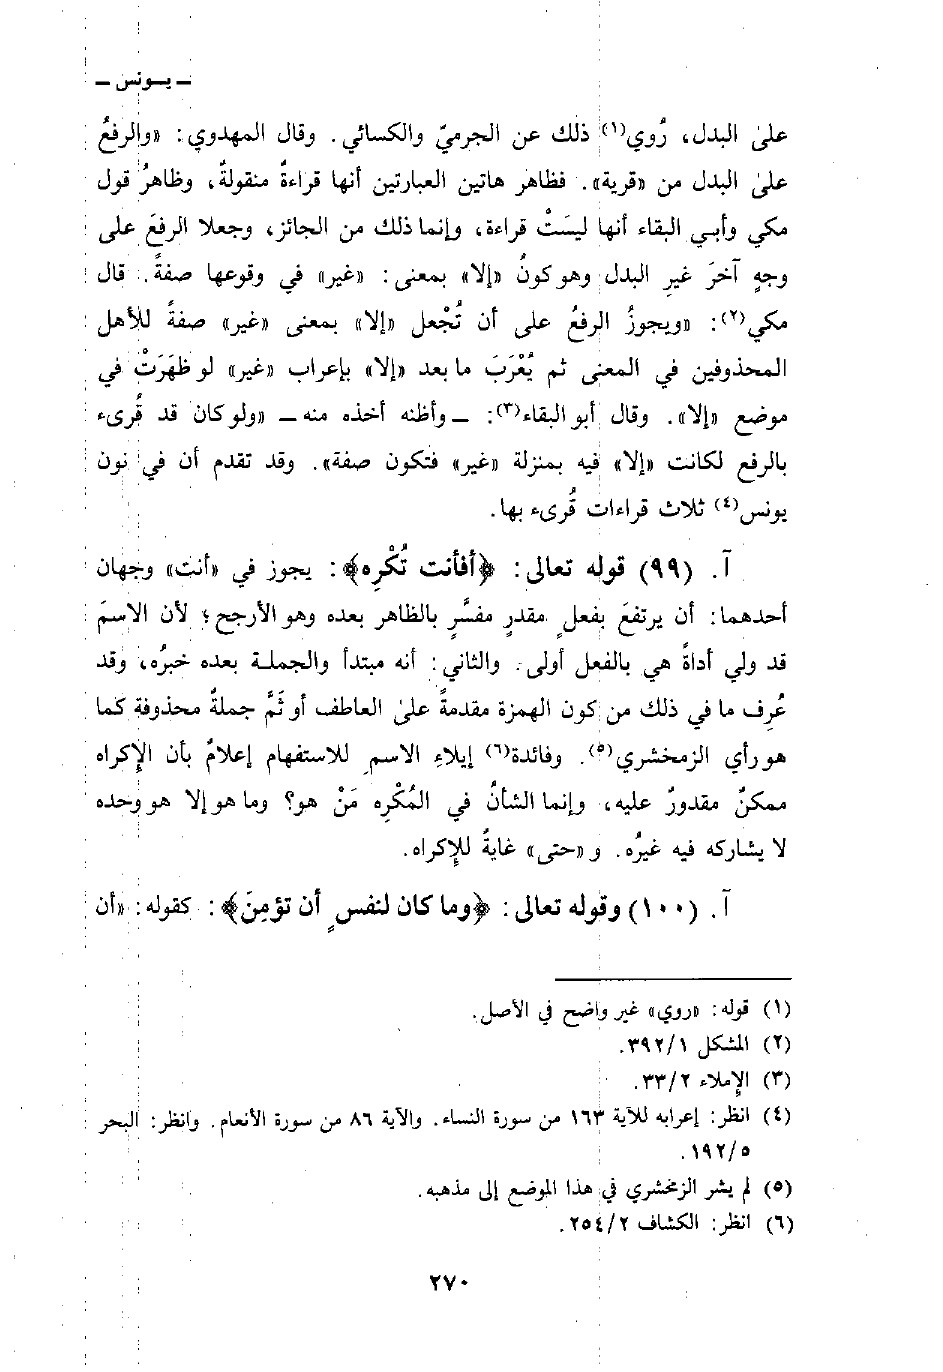 ـ يـونس ـ
علىٰ البدل، رُوي(١) ذلك عن الجرميّ والكسائي. وقال المهدوي: «والرفعُ
علىٰ البدل من «قرية». فظاهر هاتين العبارتين أنها قراءةٌ منقولةٌ، وظاهرُ قول
مكي وأبي البقاء أنها ليسَتْ قراءة، وإنما ذلك من الجائز، وجعلا الرفعَ على
وجهٍ آخرَ غيرِ البدل وهو كونُ «إلا» بمعنى: «غير» في وقوعها صفةً. قال
مكي(٢): «ويجوزُ الرفعُ على أن تُجْعل «إلا» بمعنى «غير» صفةً للأهل
المحذوفين في المعنى ثم يُعْرَبَ ما بعد «إلا» بإعراب «غير» لو ظهَرَتْ في
موضع «إلا». وقال أبو البقاء(٣): ـ وأظنه أخذه منه ـ «ولو كان قد قُرىء
بالرفع لكانت «إلا» فيه بمنزلة «غير» فتكون صفة». وقد تقدم أن في نون
يونس(٤) ثلاث قراءات قُرىء بها.
آ. (٩٩) قوله تعالى: ﴿أفأنت تُكْرِه﴾: يجوز في «أنت» وجهان
أحدهما: أن يرتفعَ بفعلٍ مقدرٍ مفسَّرٍ بالظاهر بعده وهو الأرجح؛ لأن الاسمَ
قد ولي أداةً هي بالفعل أولى. والثاني: أنه مبتدأ والجملة بعده خبرُه، وقد
عُرِف ما في ذلك من كون الهمزة مقدمةً علىٰ العاطف أو ثَمَّ جملةٌ محذوفة كما
هو رأي الزمخشري(٥). وفائدة(٦) إيلاءِ الاسمِ للاستفهام إعلامٌ بأن الإكراه
ممكنٌ مقدورٌ عليه، وإنما الشأنُ في المُكْرِه مَنْ هو؟ وما هو إلا هو وحده
لا يشاركه فيه غيرُه. و «حتى» غايةٌ للإكراه.
آ. (١٠٠) وقوله تعالى: ﴿وما كان لنفسٍ أن تؤمِنَ﴾: كقوله: «أن
(١) قوله: «روي» غير واضح في الأصل.
(٢) المشكل ٣٩٢/١.
(٣) الإملاء ٣٣/٢.
(٤) انظر: إعرابه للآية ١٦٣ من سورة النساء. والآية ٨٦ من سورة الأنعام. وانظر: البحر
١٩٢/٥.
(٥) لم يشر الزمخشري في هذا الموضع إلى مذهبه.
(٦) انظر: الكشاف ٢٥٤/٢.
٢٧٠